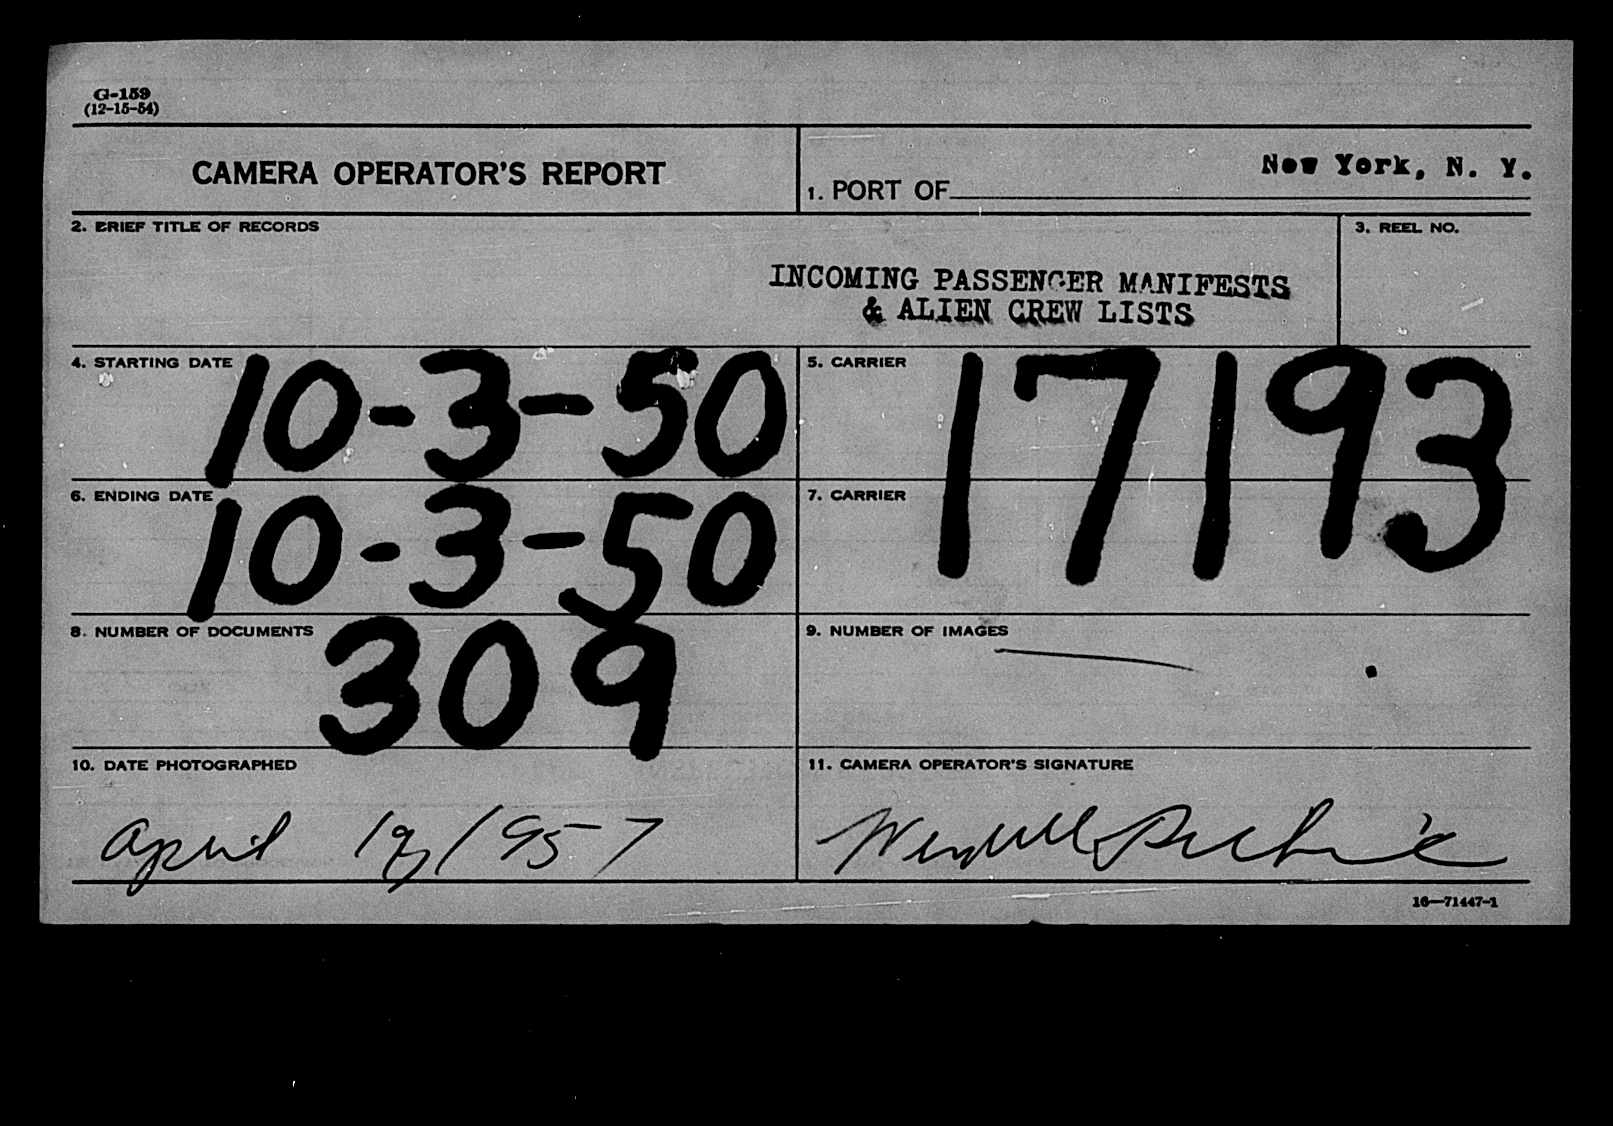 G-159
(12-15-54)
CAMERA OPERATOR'S REPORT
1. PORT OF New York, N. Y.
2. BRIEF TITLE OF RECORDS
INCOMING PASSENGER MANIFESTS
& ALIEN CREW LISTS
3. REEL NO.
4. STARTING DATE 10-3-50
5. CARRIER
17193
6. ENDING DATE 10-3-50
7. CARRIER
8. NUMBER OF DOCUMENTS 309
9. NUMBER OF IMAGES
10. DATE PHOTOGRAPHED
April 19, 1957
11. CAMERA OPERATOR'S SIGNATURE
16—71447-1